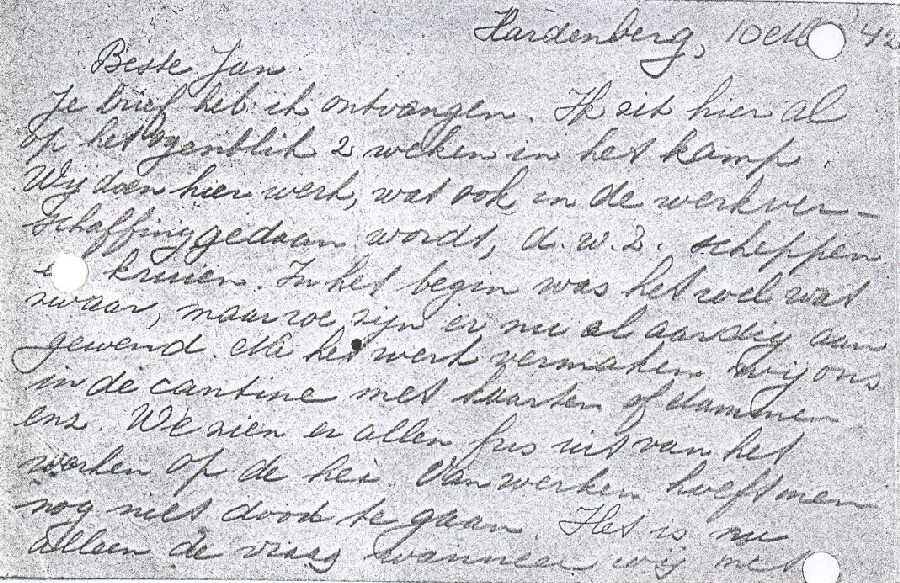 Hardenberg, 10 Mei '42
Beste Jan.
Je brief heb ik ontvangen. Ik zit hier al
op het ogenblik 2 weken in het kamp.
Wij doen hier werk, wat ook in de werkver-
schaffing gedaan wordt, d.w.z. scheppen
kruien. In het begin was het wel wat
zwaar, maar we zijn er nu al aardig aan
gewend. Na het werk vermaken wij ons
in de cantine met kaarten of dammen
enz. We zien er allen fris uit van het
werken op de hei. Van werken hoeft men
nog niet dood te gaan. Het is nu
alleen de vraag wanneer wij met